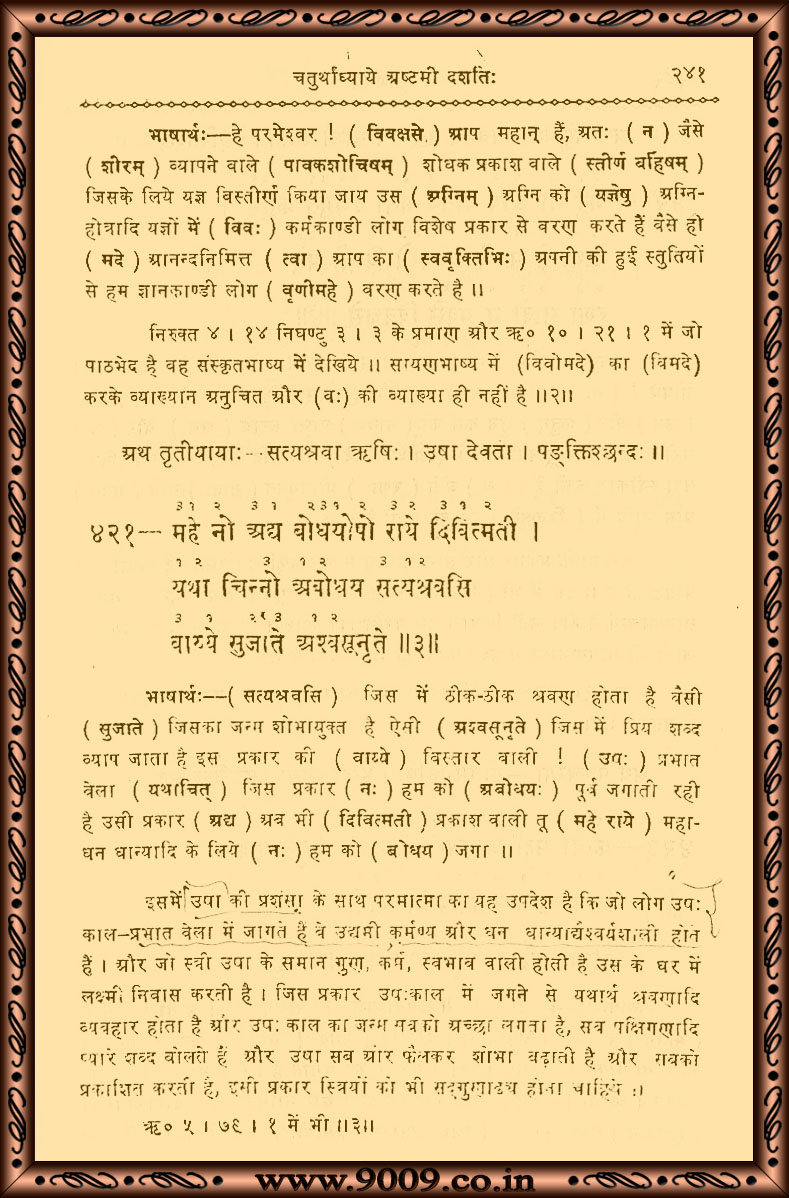 चतुर्थाध्याये अष्टमी दशतिः २४१
भाषार्थः—हे परमेश्वर ! ( विवक्षसे ) आप महान् हैं, अतः ( न ) जैसे
( शीरम् ) व्यापने वाले ( पावकशोचिषम् ) शोधक प्रकाश वाले ( स्तीर्ण बर्हिषम् )
जिसके लिये यज्ञ विस्तीर्ण किया जाय उस ( अग्निम् ) अग्नि को ( यज्ञेषु ) अग्नि-
होत्रादि यज्ञों में ( विवः ) कर्मकाण्डी लोग विशेष प्रकार से वरण करते हैं वैसे ही
( मदे ) आनन्दनिमित्त ( त्वा ) आप का ( स्ववृक्तिभिः ) अपनी की हुई स्तुतियों
से हम ज्ञानकाण्डी लोग ( वृणीमहे ) वरण करते है ।।
निरुक्त ४ । १४ निघण्टु ३ । ३ के प्रमाण और ऋ० १० । २१ । १ में जो
पाठभेद है वह संस्कृतभाष्य में देखिये ।। सायणभाष्य में (विवोमदे) का (विमदे)
करके व्याख्यान अनुचित और (वः) की व्याख्या ही नहीं है ।।२।।
अथ तृतीयायाः--सत्यश्रवा ऋषिः । उषा देवता । पङ्क्तिश्छन्दः ।।
३ १ २ ३ १ २३१ २ ३ २ ३ १ २
४२१— महे नो अद्य बोधयोषो राये दिवित्मती ।
१ २ ३ १ २ ३ १२
यथा चिन्नो अबोधय सत्यश्रवसि
३ १ २र ३ १ २
वाय्ये सुजाते अश्वसूनृते ॥३॥
भाषार्थः—( सत्यश्रवसि ) जिस में ठीक-ठीक श्रवण होता है वैसी
( सुजाते ) जिसका जन्म शोभायुक्त है ऐसी ( अश्वसूनृते ) जिस में प्रिय शब्द
व्याप जाता है इस प्रकार की ( वाय्ये ) विस्तार वाली ! ( उषः ) प्रभात
वेला ( यथाचित् ) जिस प्रकार ( नः ) हम को ( अबोधयः ) पूर्व जगाती रही
है उसी प्रकार ( अद्य ) अब भी ( दिवित्मती ) प्रकाश वाली तू ( महे राये ) महा-
धन धान्यादि के लिये ( नः ) हम को ( बोधय ) जगा ।।
इसमें उषा की प्रशंसा के साथ परमात्मा का यह उपदेश है कि जो लोग उषः
काल-प्रभात वेला में जागते हैं वे उद्यमी कर्मण्य और धन धान्याद्यैश्वर्यशाली होते
हैं । और जो स्त्री उषा के समान गुण, कर्म, स्वभाव वाली होती है उस के घर में
लक्ष्मी निवास करती है । जिस प्रकार उषःकाल में जगने से यथार्थ श्रवणादि
व्यवहार होता है और उषः काल का जन्म सबको अच्छा लगता है, सब पक्षिगणादि
प्यारे शब्द बोलते हैं और उषा सब ओर फैलकर शोभा बढ़ाती है और सबको
प्रकाशित करती है, इसी प्रकार स्त्रियों को भी सद्गुणाढ्य होना चाहिये ।।
ऋ० ५ । ७९ । १ में भी ।।३।।
www.9009.co.in